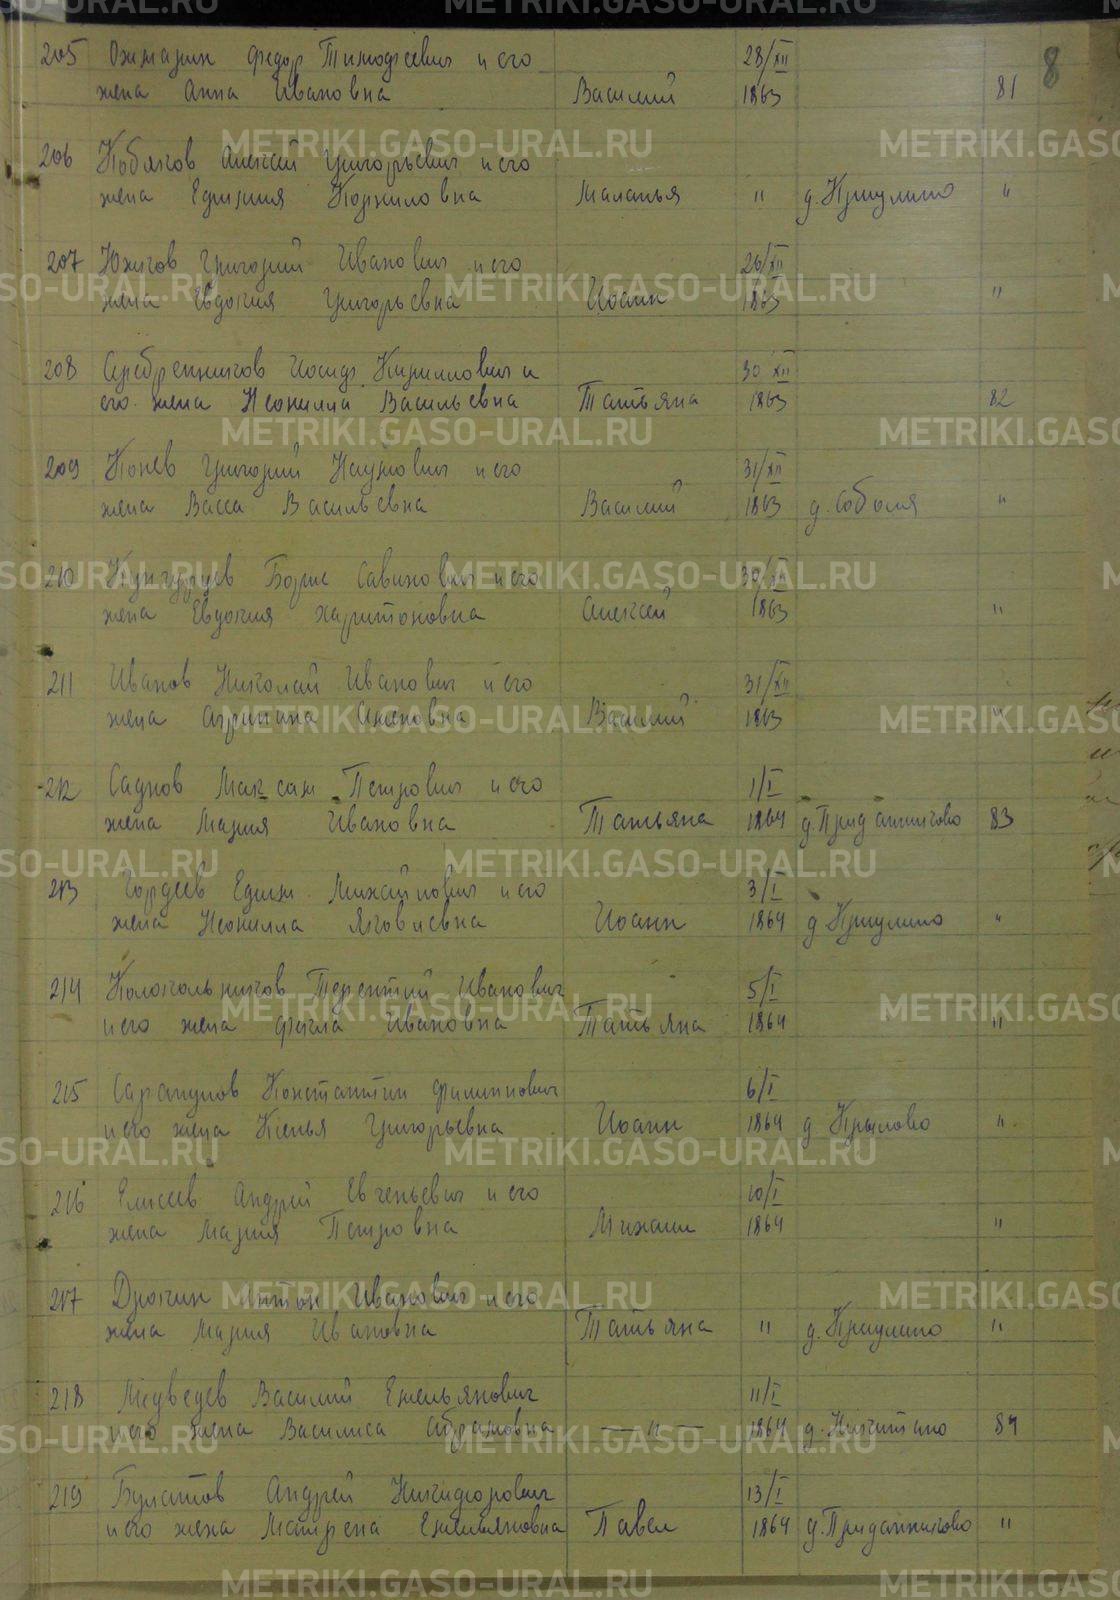 8
205 Ожмагин Федор Тимофеевич и его 28/XII
жена Анна Ивановна Василий 1863 81
206 Кобяков Алексей Григорьевич и его
жена Ефимия Корниловна Маланья " д. Криулино "
207 Южаков Григорий Иванович и его 26/XII
жена Евдокия Григорьевна Иоанн 1863 "
208 Серебренников Иосиф Кириллович и 30 XII
его жена Неонилла Васильевна Татьяна 1863 82
209 Конев Григорий Наумович и его 31/XII
жена Васса Васильевна Василий 1863 д. Соболя "
210 Кунгурцев Борис Савинович и его 30/XII
жена Евдокия Харитоновна Алексей 1863 "
211 Иванов Николай Иванович и его 31/XII
жена Агрипина Василий 1863 "
212 Максам Петрович и его 1/I
жена Мария Ивановна Татьяна 1864 д. Приданниково 83
213 Гордеев Ефим Михайлович и его 3/I
жена Неонилла Яковлевна Иоанн 1864 д Криулино "
214 Колокольников Терентий Иванович 5/I
и его жена Фекла Ивановна Татьяна 1864 "
215 Сарапулов Константин Филиппович 6/I
и его жена Ксенья Григорьевна Иоанн 1864 д Крылово "
216 Елисеев Андрей Евгеньевич и его 10/I
жена Мария Петровна Михаил 1864 "
217 Дрокин Антон Иванович и его
жена Мария Ивановна Татьяна " д. Криулино "
218 Медведев Василий Емельянович 11/I
и его жена Василиса Абрамовна — " — 1864 д. Никитино 84
219 Булатов Андрей Никифорович 13/I
и его жена Матрена Емельяновна Павел 1864 д. Приданниково "
METRIKI.GASO-URAL.RU